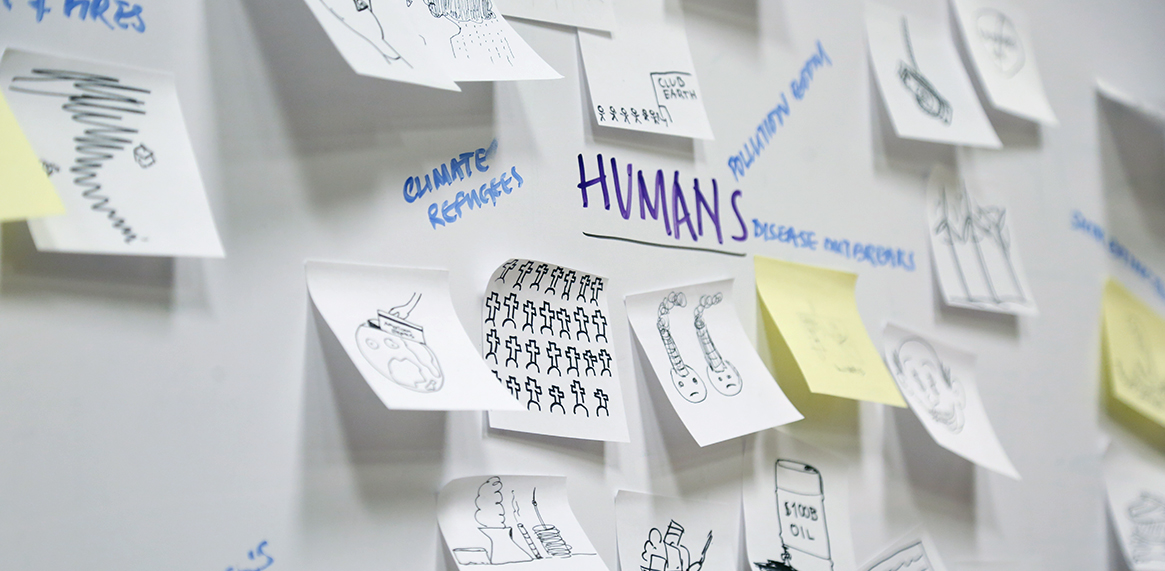 FIRES
CLUB
EARTH
POLLUTION BOOM
CLIMATE
REFUGEES
HUMANS
DISEASE OUTBREAKS
$100B
OIL